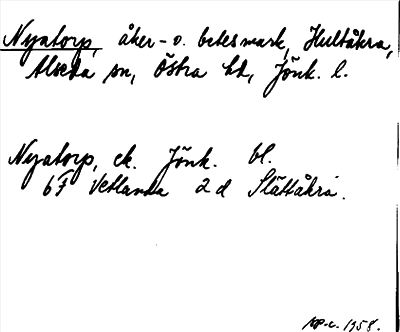 Nyatorp, åker- o. betesmark, Hultåkra,
Alseda sn, Östra hd, Jönk. l.
Nyatorp, ek. Jönk. bl.
6F Vetlanda 2d Slättåkra.
1958.